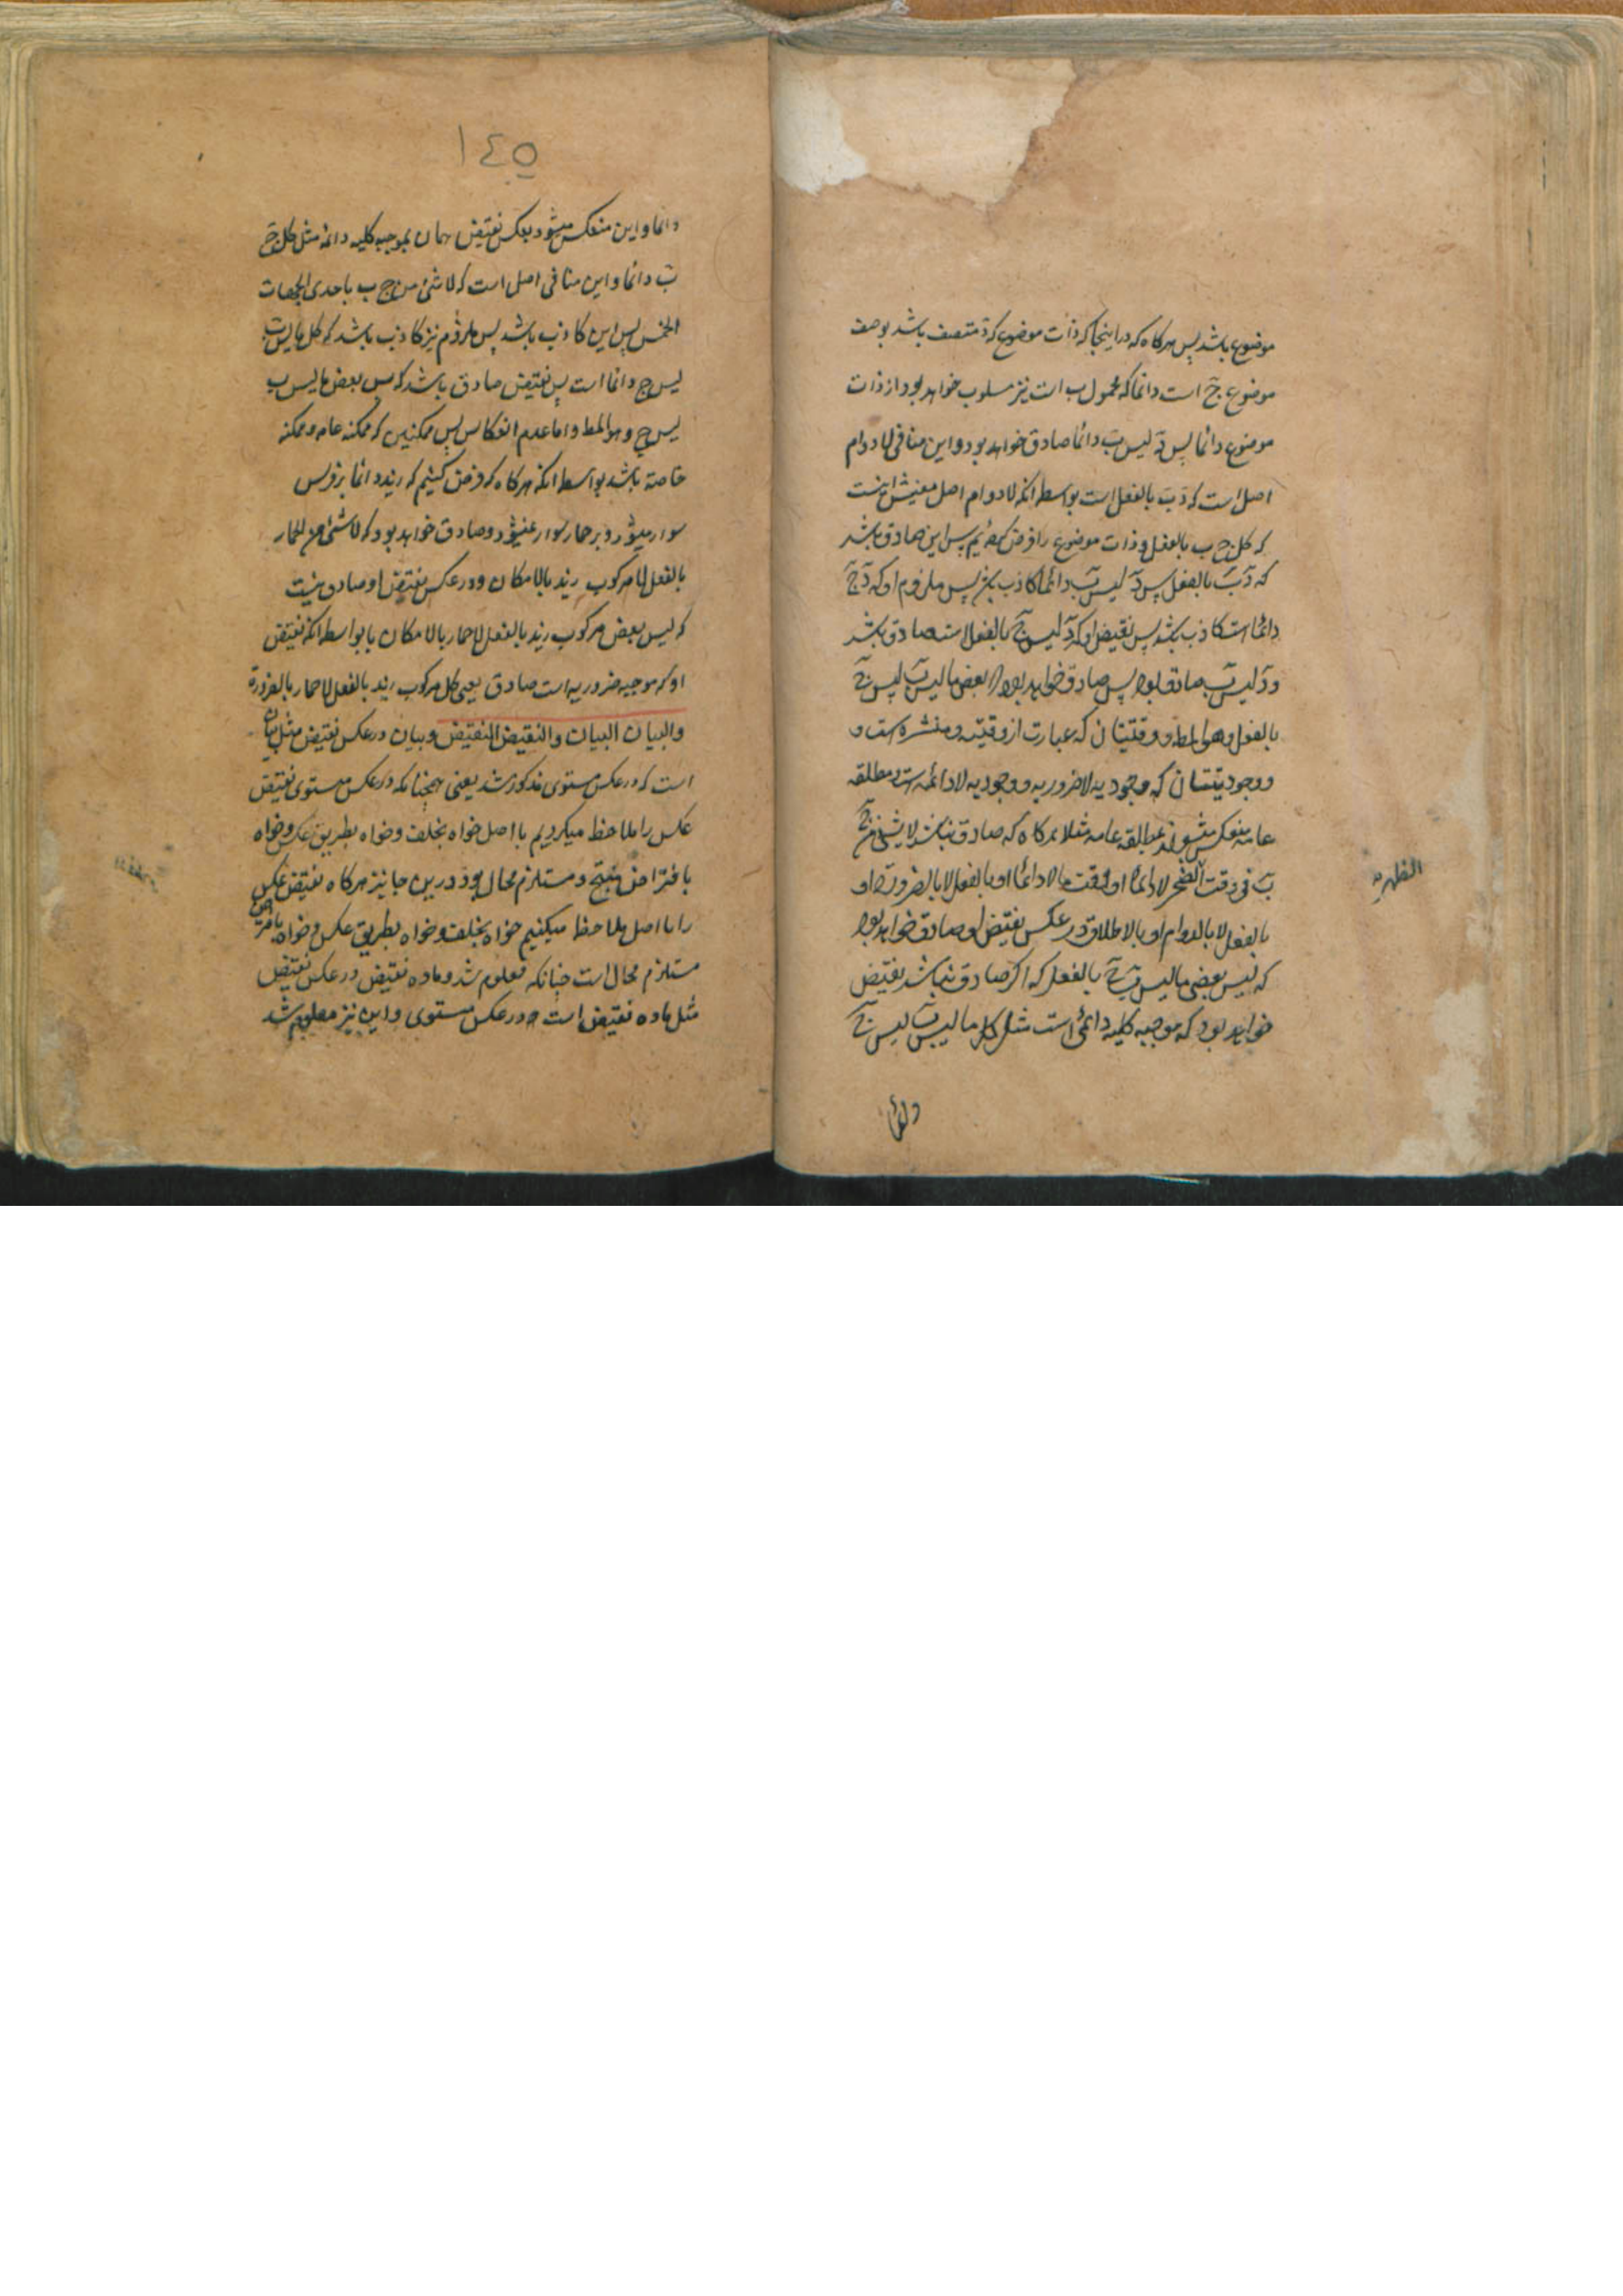 موضوع باشد پس هرکاه که در اینجا که ذات موضوع که دٓ متصف باشد بوصف
موضوع جٓ است دائما که محمول ب است نیز مسلوب خواهد بود از ذات
موضوع دائما پس دٓ لیس بٓ دائما صادق خواهد بود و این منافی لادوام
اصل است که دٓ بٓ بالفعل است بواسطه انکه لادوام اصل معنیش اینست
که کل ج ب بالفعل و ذات موضوع را فرض کردیم پس این صادق باشد
که دٓ بٓ بالفعل پس دٓ لیس بٓ دائما کاذب باشد پس ملزوم او که دٓ جٓ
دائما است کاذب باشد پس نقیض او که دٓ لیس جٓ بالفعل است صادق باشد
و دٓ لیس بٓ صادق بود پس صادق خواهد بود که بعض ما لیس بٓ لیس جٓ
بالفعل وهو المط و وقتیتان که عبارت از وقتیه و منتشره است و
و وجودیتان که وجودیه لاضروریه و وجودیه لادائمه است و مطلقه
عامه منعکس میشوند بمطلقه عامه مثلا هرکاه که صادق باشد لاشئ من جٓ
بٓ فی وقت لادائما او وقت ما لادائما او بالفعل لابالضرورة او
بالفعل لابالدوام او بالاطلاق در عکس نقیض او صادق خواهد بود
که لیس بعض ما لیس بٓ جٓ بالفعل که اکر صادق نباشد نقیض
خواهد بود که موجبه کلیه دائمی است مثل کل ما لیس بٓ لیس جٓ
دائما
الظهریه
١٤٥
دائما و این منعکس میشود بعکس نقیض همان بموجبه کلیه دائمه مثل کل جٓ
بٓ دائما و این منافی اصل است که لاشئ من ج ب باحدی الجهات
الخمس پس این کاذب باشد پس ملزوم نیز کاذب باشد که کل ما لیس بٓ
لیس ج دائما است پس نقیض صادق باشد که لیس بعض ما لیس ب
لیس ج وهو المط و اما عدم انعکاس پس ممکنتین که ممکنه عامه و ممکنه
خاصه باشد بواسطه انکه هرکاه که فرض کنیم که زید دائما بر فرس
سوار میشود و بر حمار سوار نمیشود و صادق خواهد بود که لاشئ من الحمار
بالفعل لا مرکوب زید بالامکان و در عکس نقیض او صادق نیست
که لیس بعض مرکوب زید بالفعل لاحمار بالامکان بواسطه انکه نقیض
او که موجبه ضروریه است صادق یعنی کل مرکوب زید بالفعل لاحمار بالضرورة
والبیان البیان والنقیض النقیض و بیان در عکس نقیض مثل بیان
است که در عکس مستوی مذکور شد یعنی همچنانکه در عکس مستوی نقیض
عکس را ملاحظه میکردیم با اصل خواه بخلف و خواه بطریق عکس و خواه
بافتراض منتج و مستلزم محال بود درین جا نیز هرکاه نقیض عکس
را با اصل ملاحظه میکنیم خواه بخلف و خواه بطریق عکس و خواه بافتراض
مستلزم محال است چنانکه معلوم شد و ماده نقیض در عکس نقیض
مثل ماده نقیض است در عکس مستوی و این نیز معلوم شد